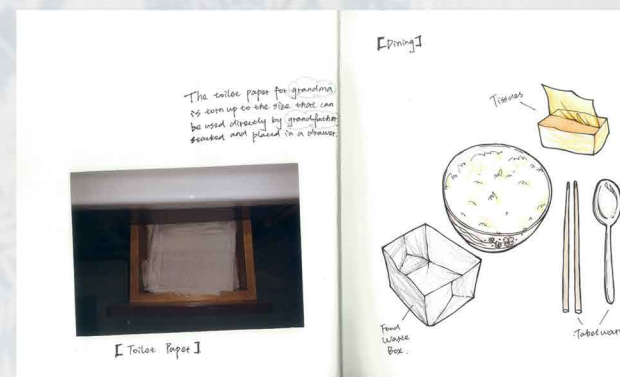 The toilet paper for grandma
is torn up to the size that can
be used directly by grandfather,
stacked and placed in a drawer.
[Toilet Paper]
[Dining]
Tissues
Food
Waste
Box.